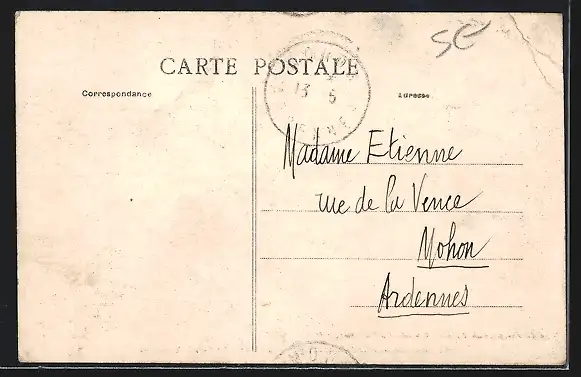 CARTE POSTALE
Correspondance
Adresse
13 5
Madame Etienne
rue de la Vence
Mohon
Ardennes